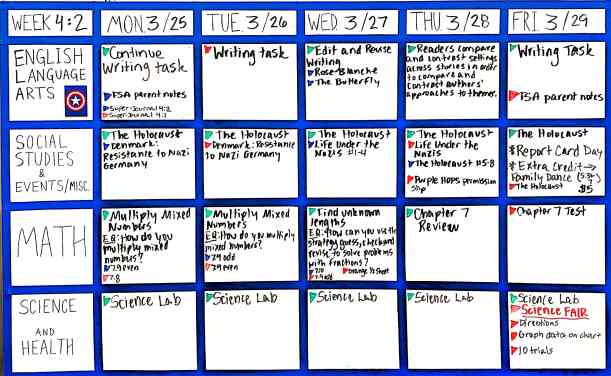 WEEK 4:2
MON 3/25
TUE 3/26
WED 3/27
THU 3/28
FRI 3/29
ENGLISH
LANGUAGE
ARTS
Continue
Writing task
FSA parent notes
Super-Journal 4:2
Super-Journal 4:1
Writing task
Edit and Revise
Writing
Rose-Blanche
The Butterfly
Readers compare
and contrast settings
across stories in order
to compare and
contrast authors'
approaches to themes.
Writing Task
FSA parent notes
SOCIAL
STUDIES
&
EVENTS/MISC.
The Holocaust
Denmark:
Resistance to Nazi
Germany
The Holocaust
Denmark: Resistance
to Nazi Germany
The Holocaust
Life Under the
Nazis #1-4
The Holocaust
Life Under the
Nazis
The Holocaust #5-8
Purple HOPS permission
slip
The Holocaust
*Report Card Day
*Extra Credit→
Family Dance
The Holocaust
$5
MATH
Multiply Mixed
Numbers
EQ: How do you
multiply mixed
numbers?
7.9 even
7.8
Multiply Mixed
Numbers
EQ: How do you multiply
mixed numbers?
7.9 odd
7.9 even
Find unknown
lengths
EQ: How can you use the
strategy guess, check and
revise to solve problems
with fractions?
7.10
Orange ½ sheet
7.9 odd
Chapter 7
Review
Chapter 7 Test
SCIENCE
AND
HEALTH
Science Lab
Science Lab
Science Lab
Science Lab
Science Lab
Science FAIR
Directions
Graph data on chart
10 trials